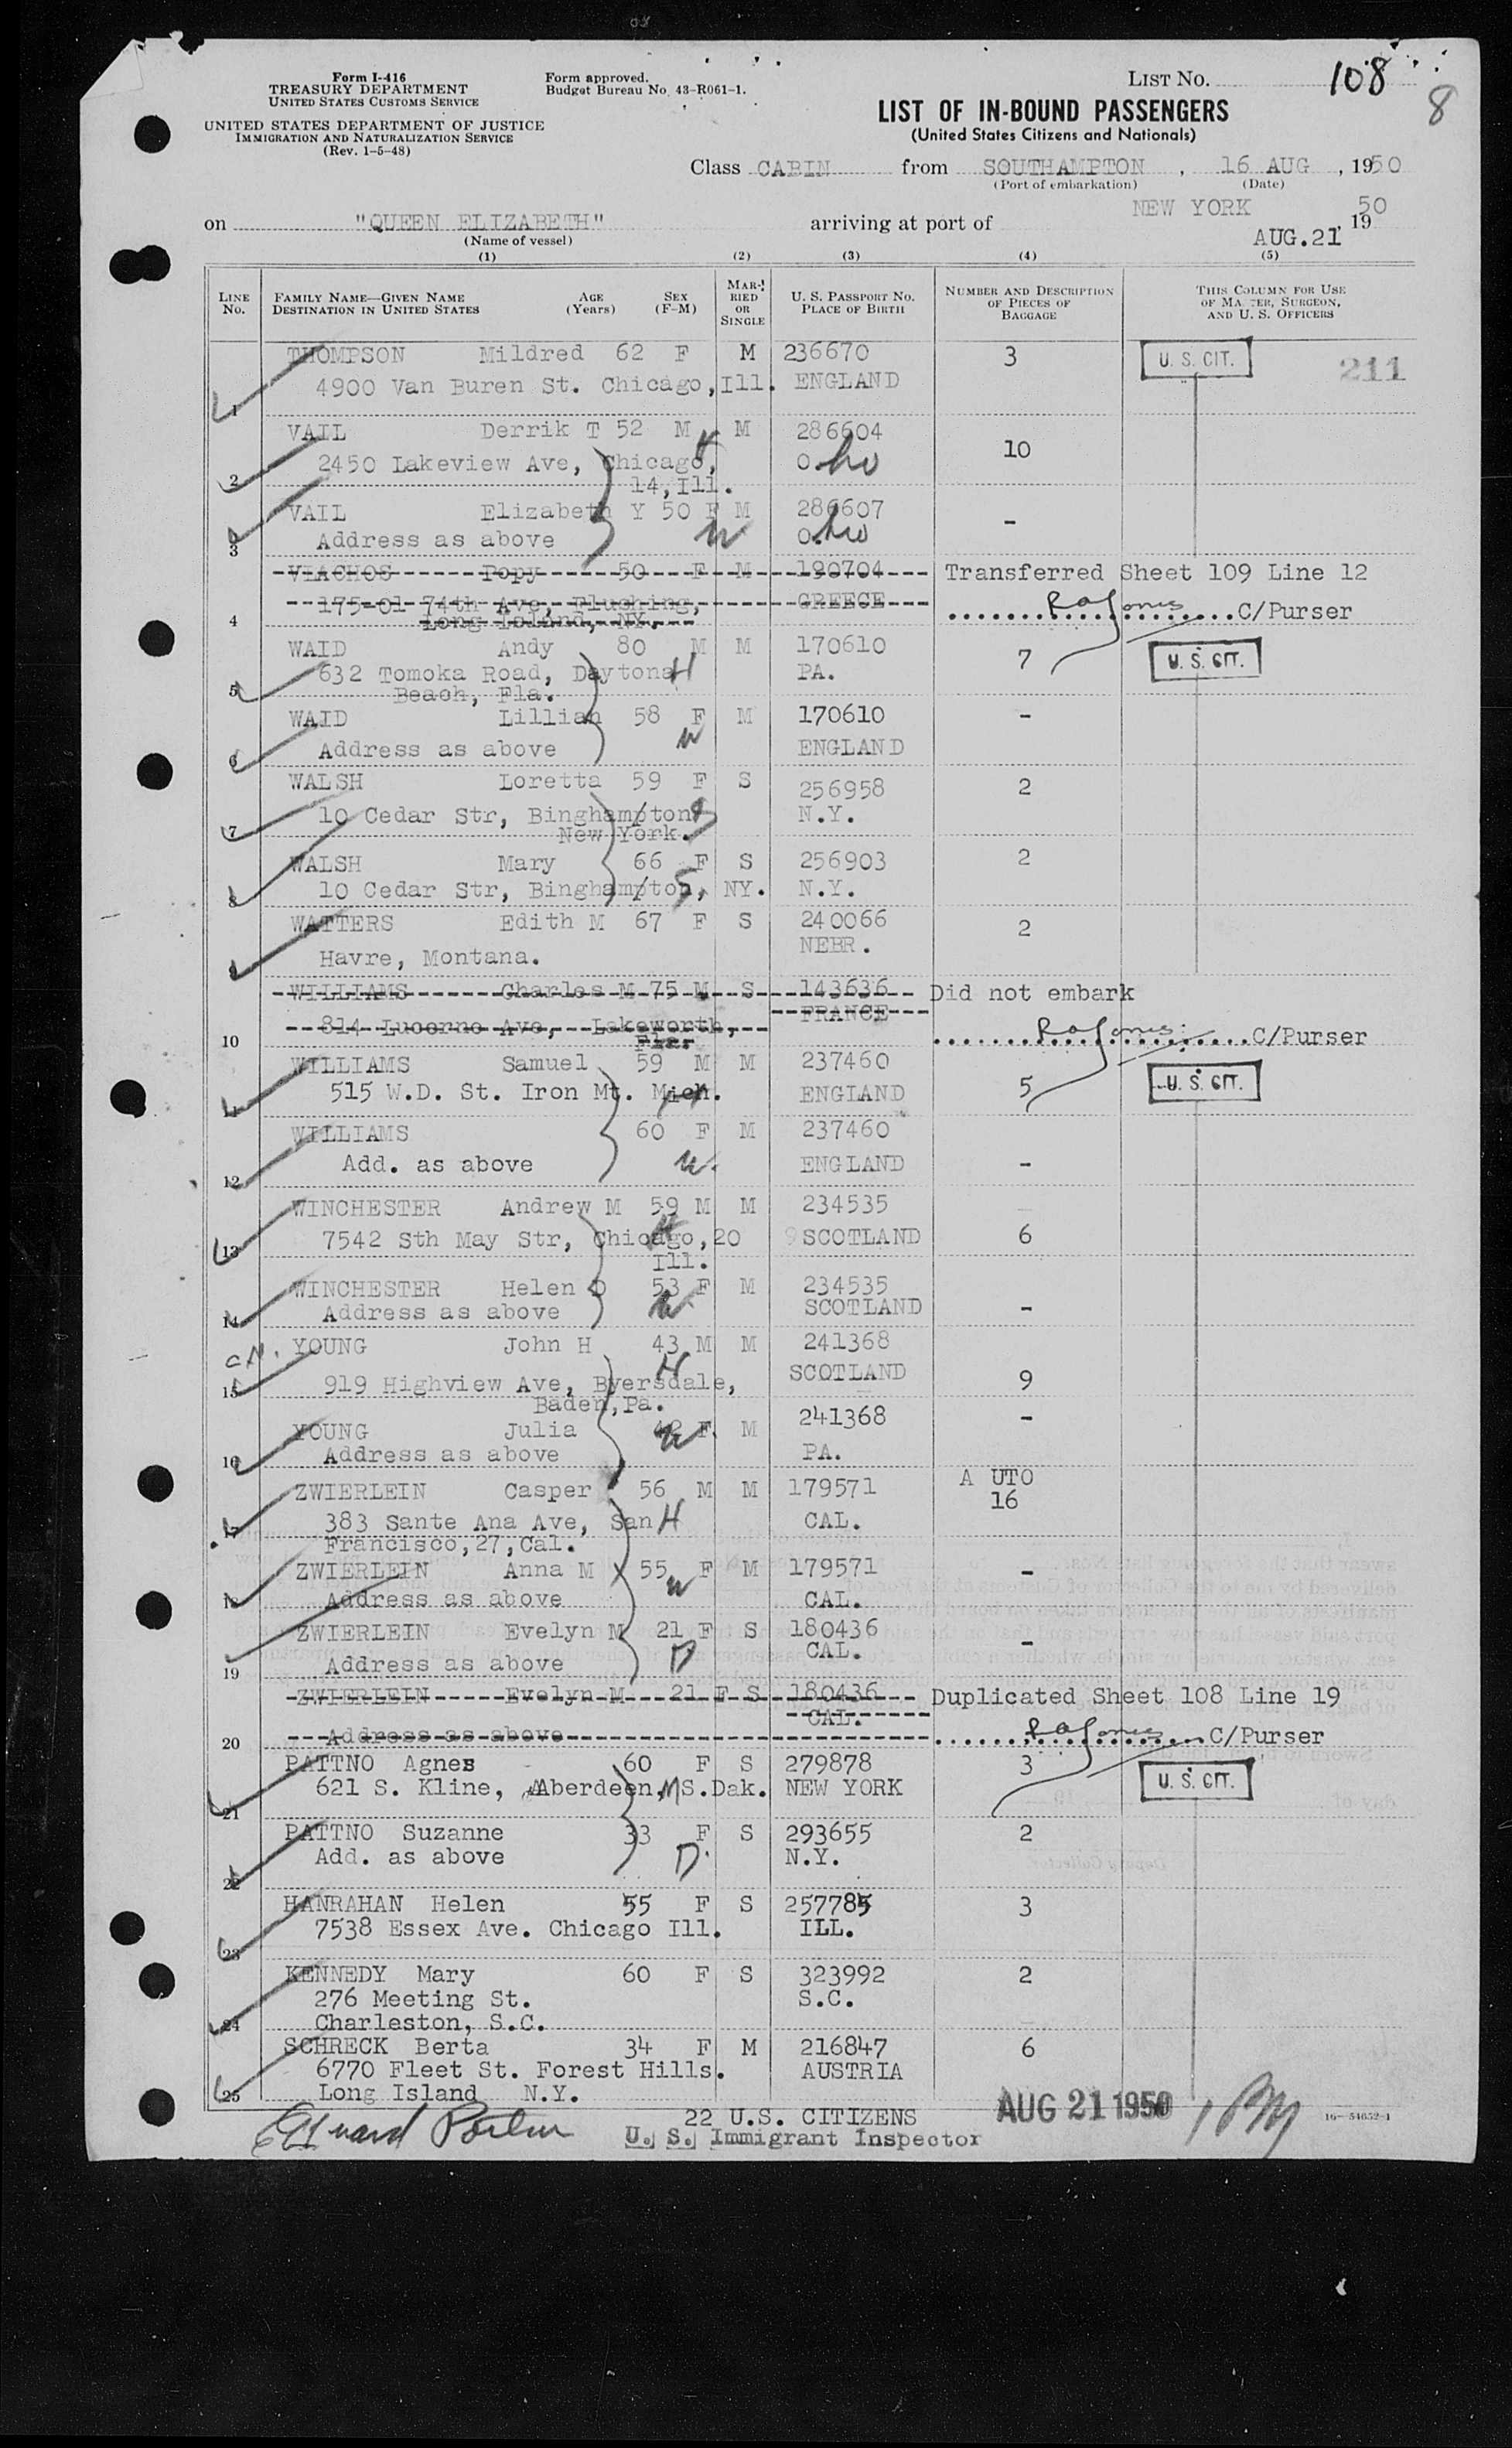 Form I-416
TREASURY DEPARTMENT
UNITED STATES CUSTOMS SERVICE
UNITED STATES DEPARTMENT OF JUSTICE
IMMIGRATION AND NATURALIZATION SERVICE
(Rev. 1-5-48)
Form approved.
Budget Bureau No. 43-R061-1.
LIST NO. 108
8
LIST OF IN-BOUND PASSENGERS
(United States Citizens and Nationals)
Class CABIN from SOUTHAMPTON, 16 AUG, 1950
(Port of embarkation) (Date)
on "QUEEN ELIZABETH" arriving at port of NEW YORK AUG.21, 1950
(Name of vessel)
(1) (2) (3) (4) (5)
LINE NO. FAMILY NAME—GIVEN NAME DESTINATION IN UNITED STATES AGE (Years) SEX (F-M) MARRIED OR SINGLE U. S. PASSPORT NO. PLACE OF BIRTH NUMBER AND DESCRIPTION OF PIECES OF BAGGAGE THIS COLUMN FOR USE OF MASTER, SURGEON, AND U. S. OFFICERS
THOMPSON Mildred 62 F M 236670 3 U. S. CIT. 211
1 4900 Van Buren St. Chicago, Ill. ENGLAND
VAIL Derrik T 52 M M 286604 10
2 2450 Lakeview Ave, Chicago, H O.hio
14, Ill.
VAIL Elizabeth Y 50 F M 286607 -
3 Address as above W O.hio
VIACHOS Popy 50 F M 190704 Transferred Sheet 109 Line 12
4 175-01 74th Ave, Flushing, GREECE RaJones C/Purser
Long Island, NY.
WAID Andy 80 M M 170610 7 U. S. CIT.
5 632 Tomoka Road, Daytona H PA.
Beach, Fla.
WAID Lillian 58 F M 170610 -
6 Address as above W ENGLAND
WALSH Loretta 59 F S 256958 2
7 10 Cedar Str, Binghampton N.Y.
New York.
WALSH Mary 66 F S 256903 2
8 10 Cedar Str, Binghampton, NY. N.Y.
WATTERS Edith M 67 F S 240066 2
9 Havre, Montana. NEBR.
WILLIAMS Charles M 75 M S 143636 Did not embark
10 814 Lucerne Ave, Lakeworth, FRANCE RaJones C/Purser
Flar
WILLIAMS Samuel 59 M M 237460 5 U. S. CIT.
11 515 W.D. St. Iron Mt. Mich. ENGLAND
WILLIAMS 60 F M 237460 -
12 Add. as above W. ENGLAND
WINCHESTER Andrew M 59 M M 234535 6
13 7542 Sth May Str, Chicago, 20 H SCOTLAND
Ill.
WINCHESTER Helen D 53 F M 234535 -
14 Address as above W SCOTLAND
YOUNG John H 43 M M 241368 9
15 919 Highview Ave, Byersdale, H SCOTLAND
Baden, Pa.
YOUNG Julia F M 241368 -
16 Address as above W PA.
ZWIERLEIN Casper 56 M M 179571 A UTO 16
17 383 Sante Ana Ave, San H CAL.
Francisco, 27, Cal.
ZWIERLEIN Anna M 55 F M 179571 -
18 Address as above W CAL.
ZWIERLEIN Evelyn M 21 F S 180436 -
19 Address as above D CAL.
ZWIERLEIN Evelyn M 21 F S 180436 Duplicated Sheet 108 Line 19
20 Address as above CAL. RaJones C/Purser
PATTNO Agnes 60 F S 279878 3 U. S. CIT.
21 621 S. Kline, Aberdeen, M S.Dak. NEW YORK
PATTNO Suzanne 33 F S 293655 2
22 Add. as above D. N.Y.
HANRAHAN Helen 55 F S 257785 3
23 7538 Essex Ave. Chicago Ill. ILL.
KENNEDY Mary 60 F S 323992 2
24 276 Meeting St. S.C.
Charleston, S.C.
SCHRECK Berta 34 F M 216847 6
25 6770 Fleet St. Forest Hills. AUSTRIA
Long Island N.Y.
22 U.S. CITIZENS AUG 21 1950
U. S. Immigrant Inspector
16—54652-1